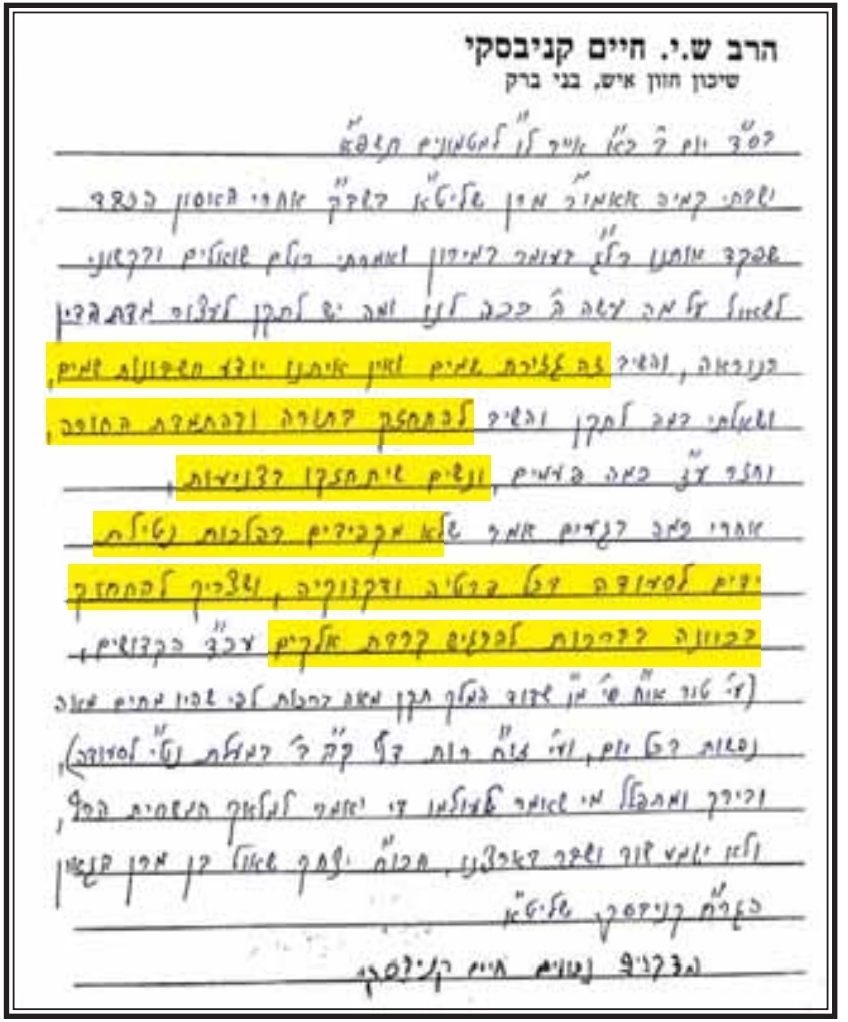 הרב ש.י. חיים קניבסקי
שיכון חזון איש, בני ברק
בס"ד יום ב' כ"א אייר ל"ו למטמונים תשפ"א
ישבתי קמיה אאמו"ר מרן שליט"א בשב"ק אחרי האסון הכבד
שפקד אותנו בל"ג בעומר במירון ואמרתי כולם שואלים ובקשוני
לשאול על מה עשה ה' ככה לנו ומה יש לתקן לעצור מדת הדין
הנוראה, והשיב זה גזירת שמים ואין איתנו יודע חשבונות שמים,
ושאלתי במה לתקן והשיב להתחזק בתורה ובהתמדת התורה,
וחזר ע"ז כמה פעמים, ונשים שיתחזקו בצניעות,
אחרי כמה רגעים אמר שלא מקפידים בהלכות נטילת
ידים לסעודה בכל פרטיה ודקדוקיה, ושצריך להתחזק
בכוונה בברכות להרגיש קרבת אלקים עכ"ד הקדושים,
(עי' טור או"ח סי' מ"ו שדוד המלך תקן מאה ברכות לפי שהיו מתים מאה
נפשות בכל יום, ועי' זוה"ח רות דף ק"ב ב' במעלת נט"י לסעודה),
ובירך ומתפלל מי שאמר לעולמו די יאמר למלאך המשחית הרף,
ולא ישמע שוד ושבר בארצנו, הכו"ח יצחק שאול בן מרן הגאון
הגר"ח קניבסקי שליט"א
הדברים נכונים חיים קניבסקי